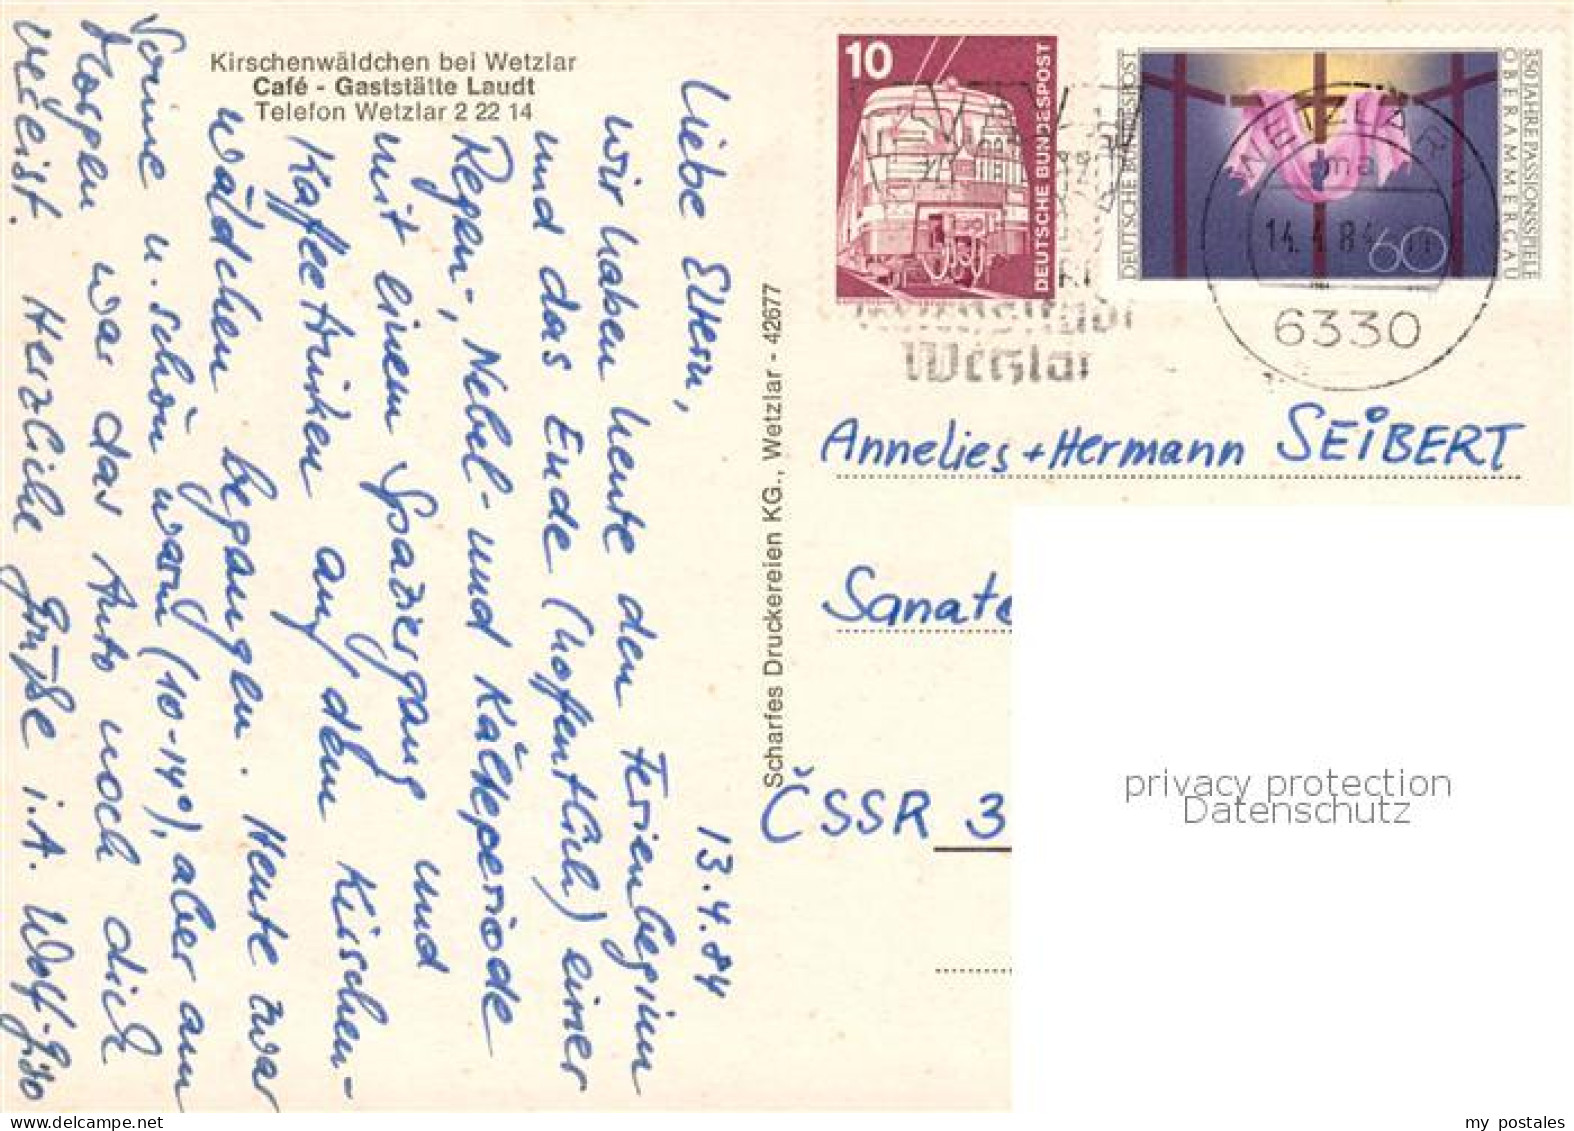 Kirschenwäldchen bei Wetzlar
Café - Gaststätte Laudt
Telefon Wetzlar 2 22 14
13.4.84
Liebe Eltern,
wir haben heute den Ferienbeginn
und das Ende (hoffentlich) einer
Regen-, Nebel- und Kälteperiode
mit einem Spaziergang und
Kaffeetrinken auf dem Kirschen-
wäldchen begangen. Heute zwar
Sonne u. schön warm (10-14°), aber am
Morgen war das Auto noch dick
vereist. Herzliche Grüße i.A. Wolf-
Scharfes Druckereien KG., Wetzlar - 42677
10
DEUTSCHE BUNDESPOST
DEUTSCHE BUNDESPOST
350 JAHRE PASSIONSSPIELE
OBERAMMERGAU
60
WETZLAR 1
ma
14.4.84
6330
Wetzlar
Annelies + Hermann SEIBERT
Sanato
ČSSR 3
privacy protection
Datenschutz
my postales